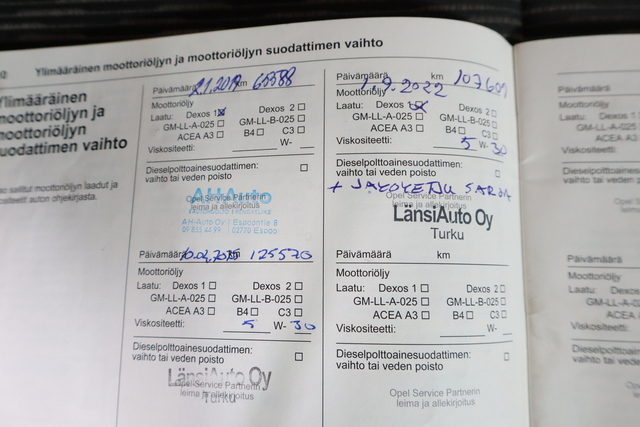 Ylimääräinen moottoriöljyn ja moottoriöljyn suodattimen vaihto
Ylimääräinen
moottoriöljyn ja
moottoriöljyn
suodattimen vaihto
sallitut moottoriöljyn laadut ja
auton ohjekirjasta.
Päivämäärä 2.1.2019 km 65588
Moottoriöljy
Laatu: Dexos 1 Dexos 2
GM-LL-A-025 GM-LL-B-025
ACEA A3 B4 C3
Viskositeetti: W-
Dieselpolttoainesuodattimen:
vaihto tai veden poisto
AHAuto
Opel Service Partnerin
leima ja allekirjoitus
AH-Auto Oy Espoontie 8
02770 Espoo
Päivämäärä km 125570
Moottoriöljy
Laatu: Dexos 1 Dexos 2
GM-LL-A-025 GM-LL-B-025
ACEA A3 B4 C3
Viskositeetti: 5 W- 30
Dieselpolttoainesuodattimen:
vaihto tai veden poisto
LänsiAuto Oy
Opel Service Partnerin
leima ja allekirjoitus
Turku
Päivämäärä 1.9.2022 km 107601
Moottoriöljy
Laatu: Dexos 1 Dexos 2
GM-LL-A-025 GM-LL-B-025
ACEA A3 B4 C3
Viskositeetti: 5 W- 30
Dieselpolttoainesuodattimen:
vaihto tai veden poisto
+ JAKOKETJU SARJA
Opel Service Partnerin
leima ja allekirjoitus
LänsiAuto Oy
Turku
Päivämäärä km
Moottoriöljy
Laatu: Dexos 1 Dexos 2
GM-LL-A-025 GM-LL-B-025
ACEA A3 B4 C3
Viskositeetti: W-
Dieselpolttoainesuodattimen:
vaihto tai veden poisto
Opel Service Partnerin
leima ja allekirjoitus
Päivämäärä
Moottoriöljy
Laatu: Dexos
GM-LL-A-025
ACEA A3
Viskositeetti:
Dieselpolttoainesuodattimen
vaihto tai veden poisto
Päivämäärä
Moottoriöljy
Laatu: Dexos
GM-LL-A-025
ACEA A3
Viskositeetti:
Dieselpolttoaine
vaihto tai veden